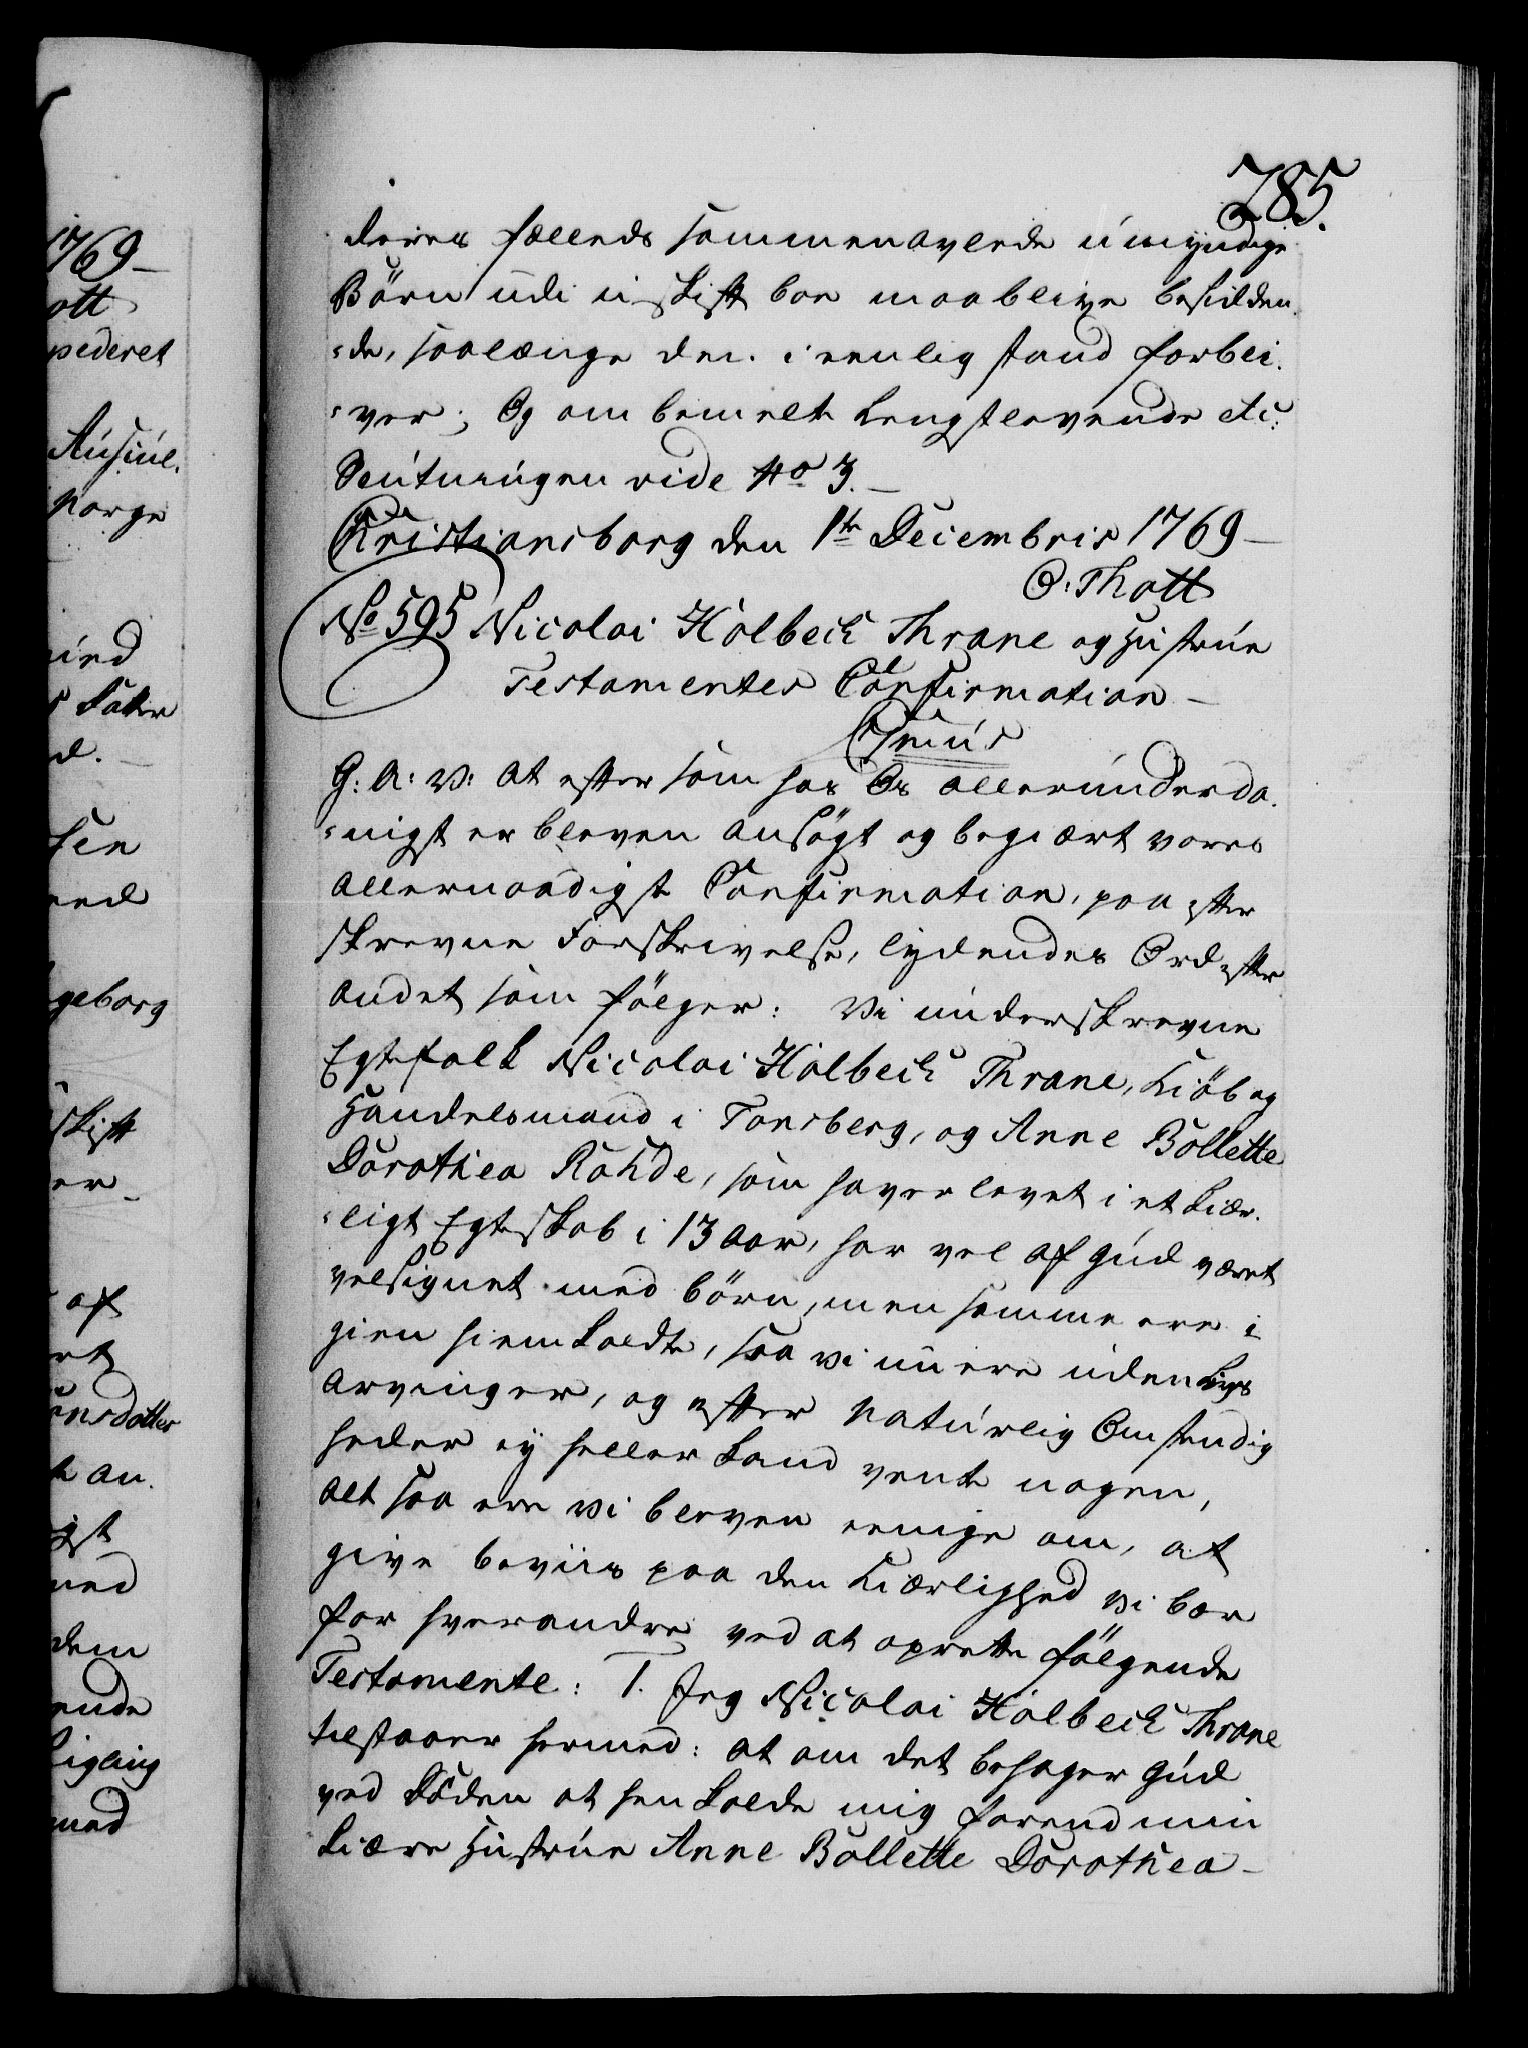 785.
deres fælleds sammenavlede umyndige
Börn udi uskift boe maa blive besidden¬
¬de, saalænge den i eenlig stand forbli¬
¬ver; Og om bemelte Længstlevende etc:
Slutningen vide No 3.
Christiansborg den 1te Decembris 1769
O. Thott
No 595 Nicolai Holbech Thrane og Hustrue
Testamentes Confirmation
Gratis
G: A: V: at eftersom hos Os allerunderda¬
¬nigst er bleven ansögt og begiært vores
allernaadigst Confirmation, paa efter
skrevne Forskrivelse, lydendes Ord efter
andet som fölger: Vi underskrevne
Egtefolk Nicolai Holbech Thrane, Kiöb og
Handelsmand i Tonsberg, og Anne Bollette
Dorothea Rohde, som haver levet i et kiær¬
¬ligt Egteskab i 13 Aar, har vel af Gud været
velsignet med börn, men samme ere i
gien hiemkaldte, saa vi nu ere uden Livs
Arvinger, og efter naturlig Omstendig
heder ey heller kand vente nogen,
alt saa ere vi bleven eenige om, at
give beviis paa den Kiærlighed vi bær
for hverandre ved at oprette fölgende
Testamente: 1. Jeg Nicolai Holbech Thrane
tilstaaer hermed: at om det behager Gud
ved Döden at henkalde mig forend min
kiære Hustrue Anne Bollette Dorothea
1769
ott
pederet
Norge
geborg
skift
af
ensdotter
an.
dem
ende
med